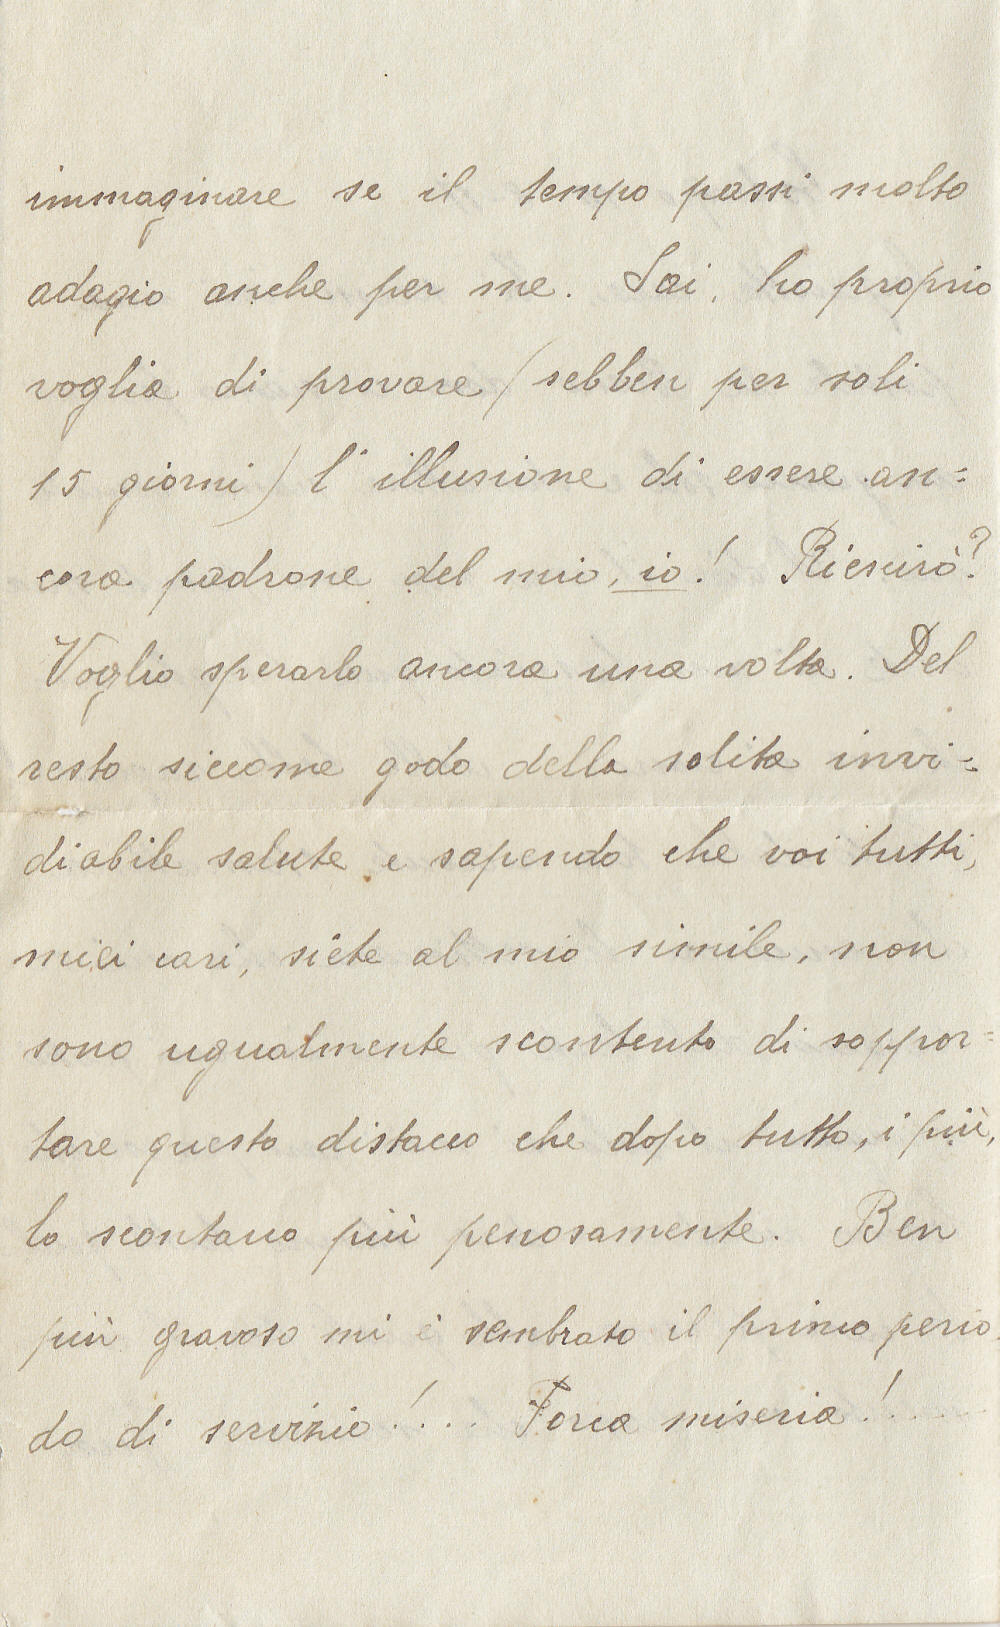 immaginare se il tempo passi molto
adagio anche per me. Sai, ho proprio
voglia di provare (sebben per soli
15 giorni) l'illusione di essere an=
cora padrone del mio, io! Riescirò?
Voglio sperarlo ancora una volta. Del
resto siccome godo della solita invi=
diabile salute e sapendo che voi tutti,
miei cari, siete al mio simile, non
sono ugualmente scontento di soppor=
tare questo distacco che dopo tutto, i più,
lo scontano più penosamente. Ben
più gravoso mi è sembrato il primo perio
do di servizio!... Porca miseria!.....